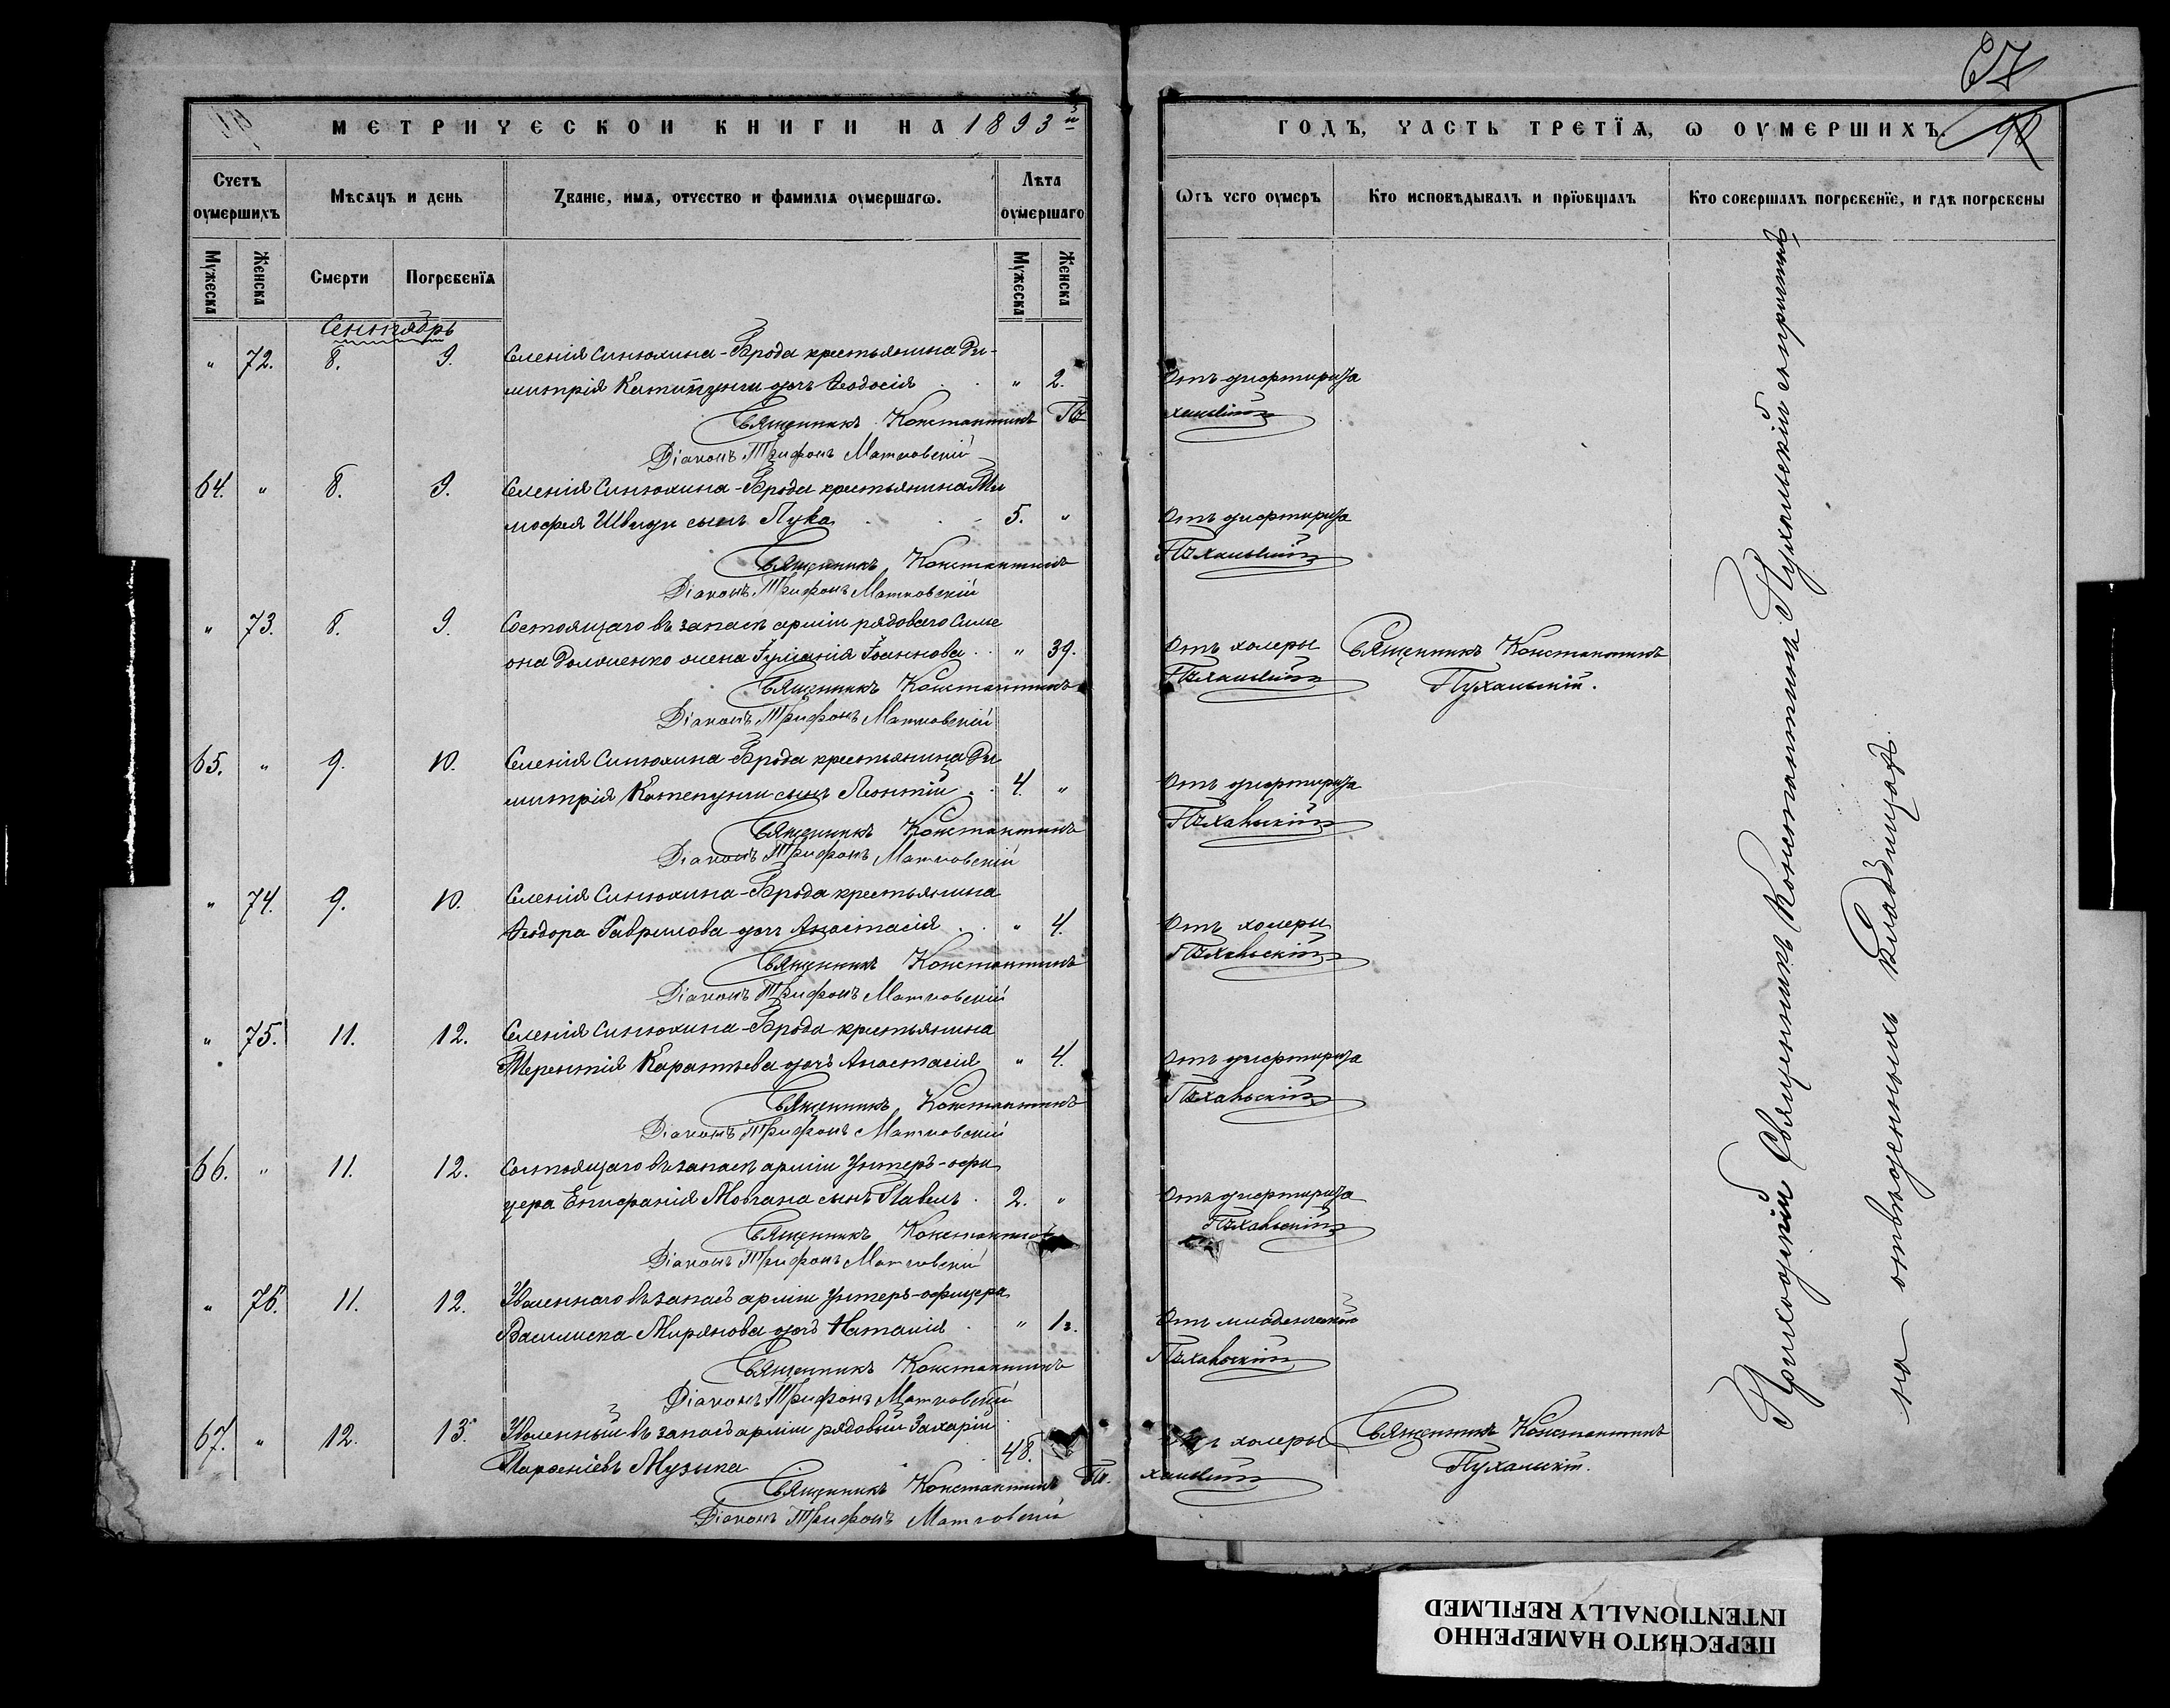 МЕТРИЧЕСКОЙ КНИГИ НА 1893й
Счетъ оумершихъ
Мѣсяцъ и день
Званіе, имя, отчество и фамилія оумершагѡ.
Лѣта оумершаго
Мужеска
Женска
Смерти
Погребенїя
Мужеска
Женска
Сентябрь
" 72. 8. 9. Селенія Синюхина-Брода крестьянина Ди-
митрія дочь Ѳеодосія . . " 2.
Священникъ Константинъ Пу
Діаконъ Трифонъ Матковскій
64. " 8. 9. Селенія Синюхина-Брода крестьянина Ти
моѳея Швидун сынъ Лука . . 5. "
Священникъ Константинъ
Діаконъ Трифонъ Матковскій
" 73. 8. 9. Состоящаго въ запасѣ арміи рядоваго Симе
она жена Іуліанія Іоаннова . . " 39.
Священникъ Константинъ
Діаконъ Трифонъ Матковскій
65. " 9. 10. Селенія Синюхина-Брода крестьянина Ди
митрія сынъ Леонтій . . 4. "
Священникъ Константинъ
Діаконъ Трифонъ Матковскій
" 74. 9. 10. Селенія Синюхина-Брода крестьянина
Ѳеодора Гаврилова дочь Анастасія . . " 4.
Священникъ Константинъ
Діаконъ Трифонъ Матковскій
" 75. 11. 12. Селенія Синюхина-Брода крестьянина
Терентія дочь Анастасія " 4.
Священникъ Константинъ
Діаконъ Трифонъ Матковскій
66. " 11. 12. Состоящаго въ запасѣ арміи Унтеръ-офи
цера Епифанія Мовчана сынъ Павелъ . 2. "
Священникъ Константинъ
Діаконъ Трифонъ Матковскій
" 76. 11. 12. Уволеннаго въ запасъ арміи Унтеръ-офицера
Василиска Мирянова дочь Наталія . "
Священникъ Константинъ
Діаконъ Трифонъ Матковскій
67. " 12. 13. Уволенный въ запасъ арміи рядовый Захарій
Парѳеніевъ Музыка . 48.
Священникъ Константинъ Пу
Діаконъ Трифонъ Матковскій
ГОДЪ, ЧАСТЬ ТРЕТЇЯ, Ѡ ОУМЕРШИХЪ.
Ѿтъ чего оумеръ
Кто исповѣдывалъ и прїобщалъ
Кто совершалъ погребенїе, и гдѣ погребены
Отъ дифтирита
хальскій
Отъ дифтирита
Пухальскій
Отъ холеры Священникъ Константинъ
Пухальскій Пухальскій.
Отъ дифтирита
Пухальскій
Отъ холеры
Пухальскій
Отъ дифтирита
Пухальскій
Отъ дифтирита
Пухальскій
Отъ младенческой
Пухальскій
Отъ холеры Священникъ Константинъ
хальскій Пухальскій.
Приходскій Священникъ Константинъ Пухальскій съ причтомъ
на отведенныхъ кладбищахъ.
ПЕРЕСНЯТО НАМЕРЕННО
INTENTIONALLY REFILMED